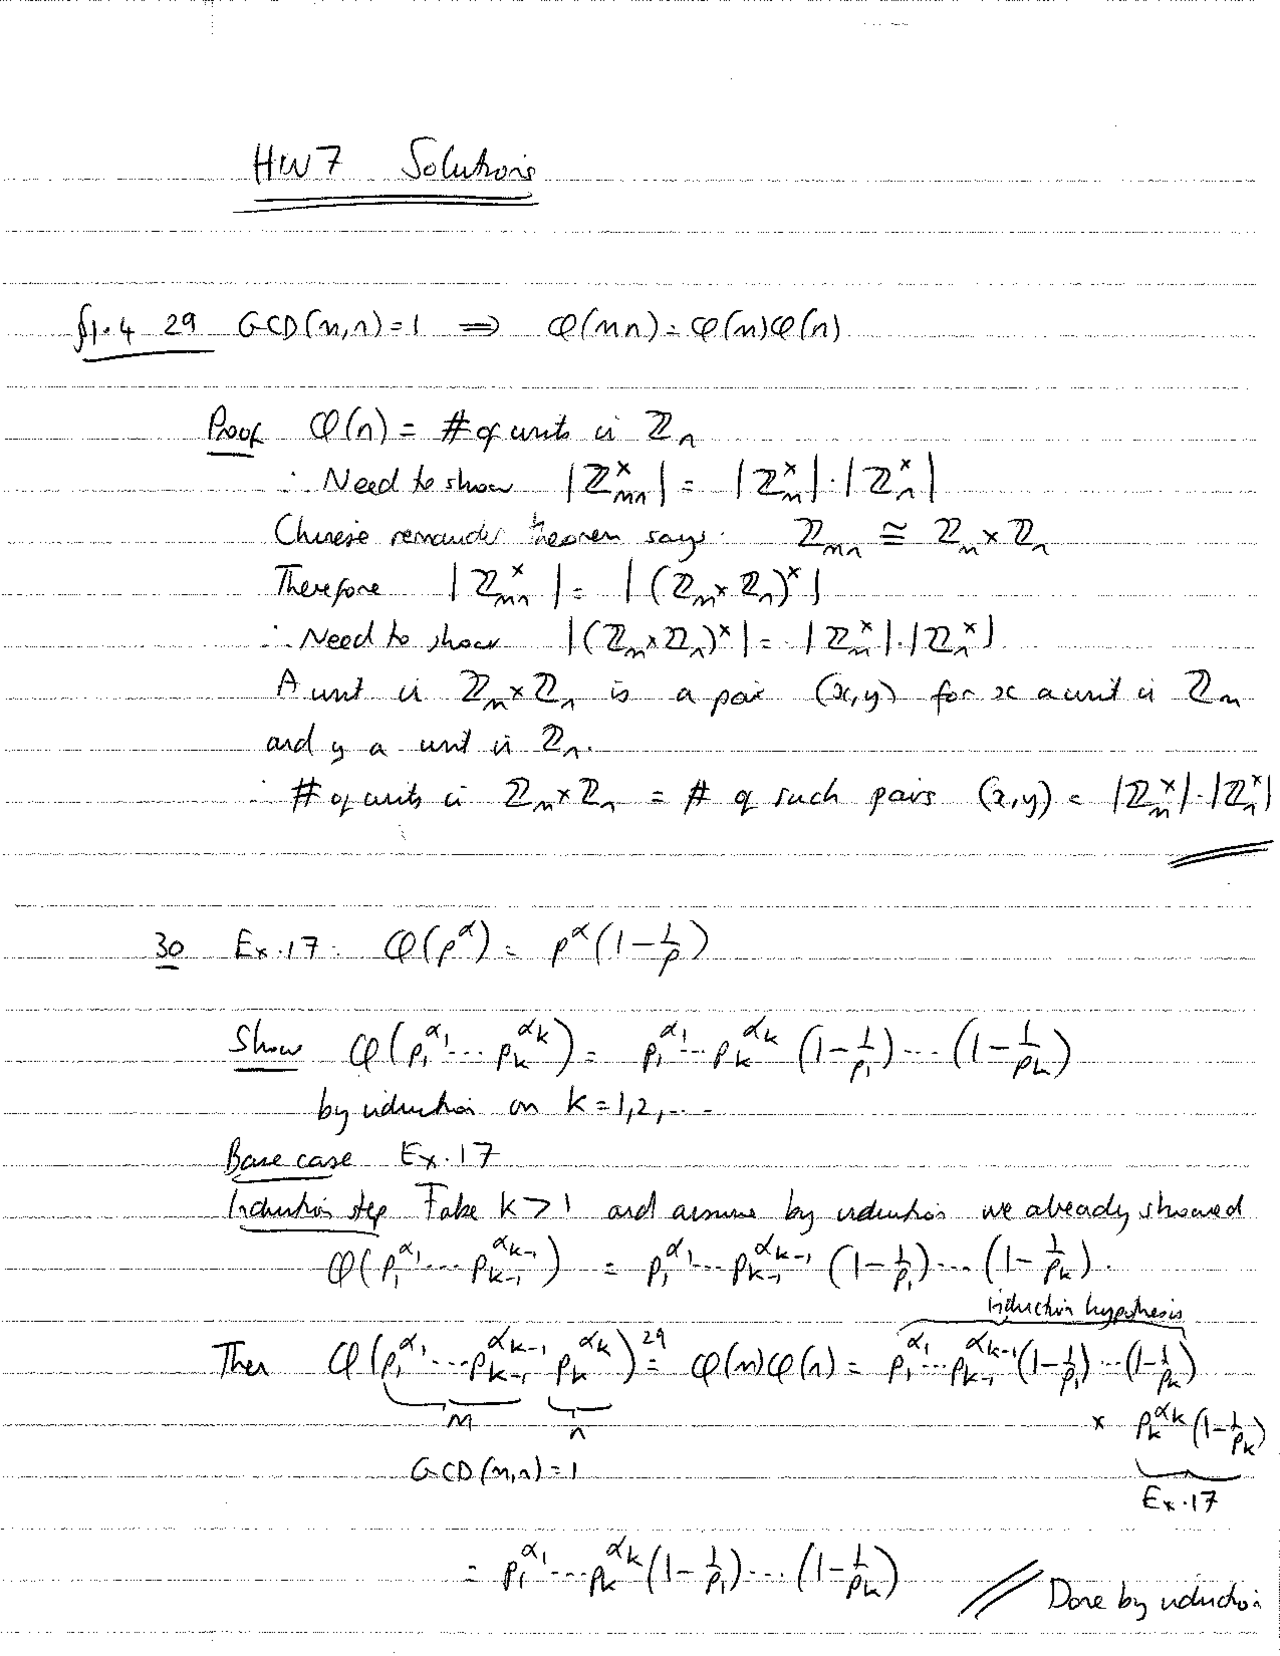 HW7 Solutions
§1.4 29 GCD(m,n)=1 ⟹ φ(mn)=φ(m)φ(n)
Proof φ(n) = # of units in ℤₙ
∴ Need to show |ℤ_{mn}^×| = |ℤ_m^×|·|ℤ_n^×|
Chinese remainder theorem says ℤ_{mn} ≅ ℤ_m × ℤ_n
Therefore |ℤ_{mn}^×| = |(ℤ_m × ℤ_n)^×|
∴ Need to show |(ℤ_m × ℤ_n)^×| = |ℤ_m^×|·|ℤ_n^×|.
A unit in ℤ_m × ℤ_n is a pair (x,y) for x a unit in ℤ_m
and y a unit in ℤ_n.
∴ # of units in ℤ_m × ℤ_n = # of such pairs (x,y) = |ℤ_m^×|·|ℤ_n^×|
30 Ex.17: φ(p^α) = p^α(1-1/p)
Show φ(p_1^{α_1}...p_k^{α_k}) = p_1^{α_1}...p_k^{α_k}(1-1/p_1)...(1-1/p_k)
by induction on k=1,2,...
Base case Ex.17
Induction step Take k>1 and assume by induction we already showed
φ(p_1^{α_1}...p_{k-1}^{α_{k-1}}) = p_1^{α_1}...p_{k-1}^{α_{k-1}}(1-1/p_1)...(1-1/p_k).
induction hypothesis
Then φ(p_1^{α_1}...p_{k-1}^{α_{k-1}} p_k^{α_k}) =^{29} φ(m)φ(n) = p_1^{α_1}...p_{k-1}^{α_{k-1}}(1-1/p_1)...(1-1/p_k)
m n × p_k^{α_k}(1-1/p_k)
GCD(m,n)=1
Ex.17
= p_1^{α_1}...p_k^{α_k}(1-1/p_1)...(1-1/p_k)
Done by induction